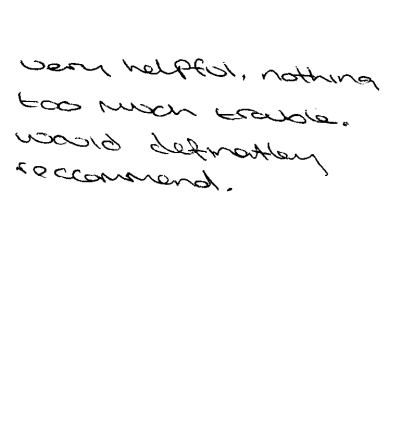 very helpful, nothing
too much trouble.
would definatley
reccommend.